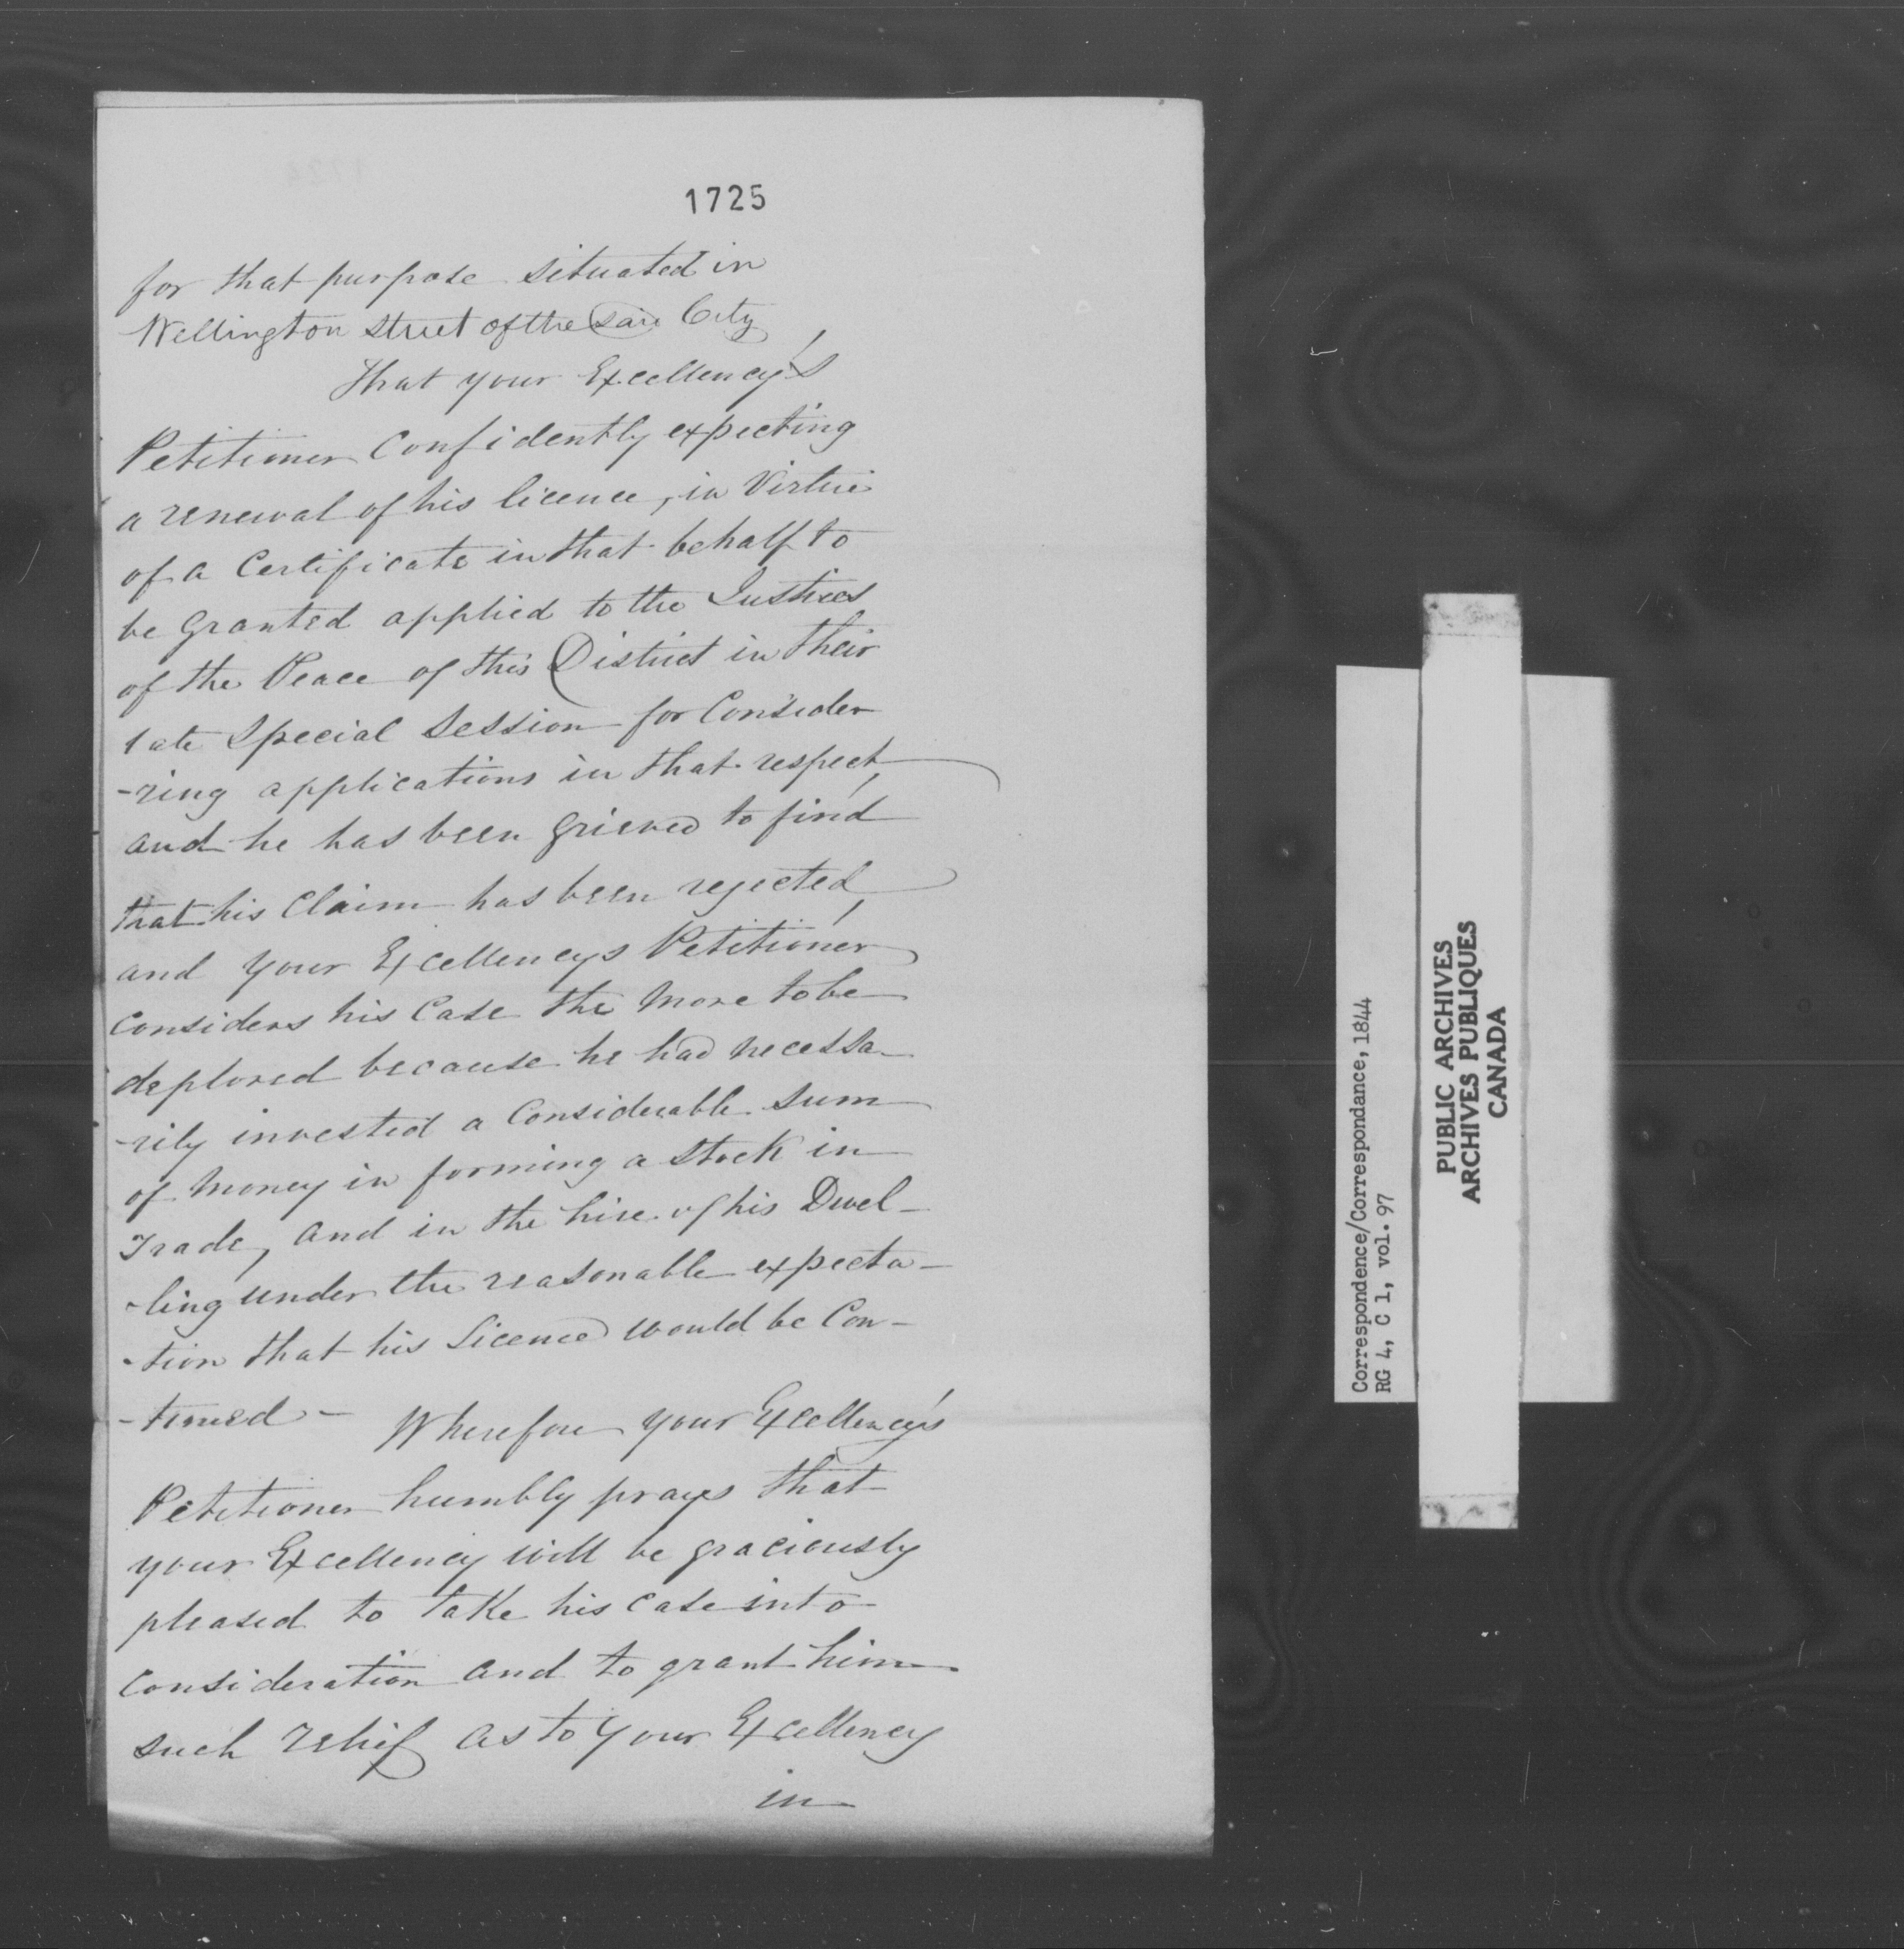 1725
for that purpose situated in
Wellington street of the said City
That your Excellency's
Petitioner Confidently expecting
a renewal of his licence, in Virtue
of a Certificate in that behalf to
be granted applied to the Justices
of the Peace of this District in their
late Special Session for Consider
-ring applications in that respect,
and he has been grieved to find
that his Claim has been rejected,
and your Excellencys Petitioner
Considers his Case the more to be
deplored because he had necessa-
-rily invested a Considerable sum
of money in forming a stock in
Trade, and in the hire of his Dwel-
-ling under the reasonable expecta-
-tion that his Licence would be Con-
-tinued - Wherefore your Excellency's
Petitioner humbly prays that
your Excellency will be graciously
pleased to take his case into
Consideration and to grant him
such relief as to your Excellency
in
Correspondence/Correspondance, 1844
RG 4, C 1, vol. 97
PUBLIC ARCHIVES
ARCHIVES PUBLIQUES
CANADA